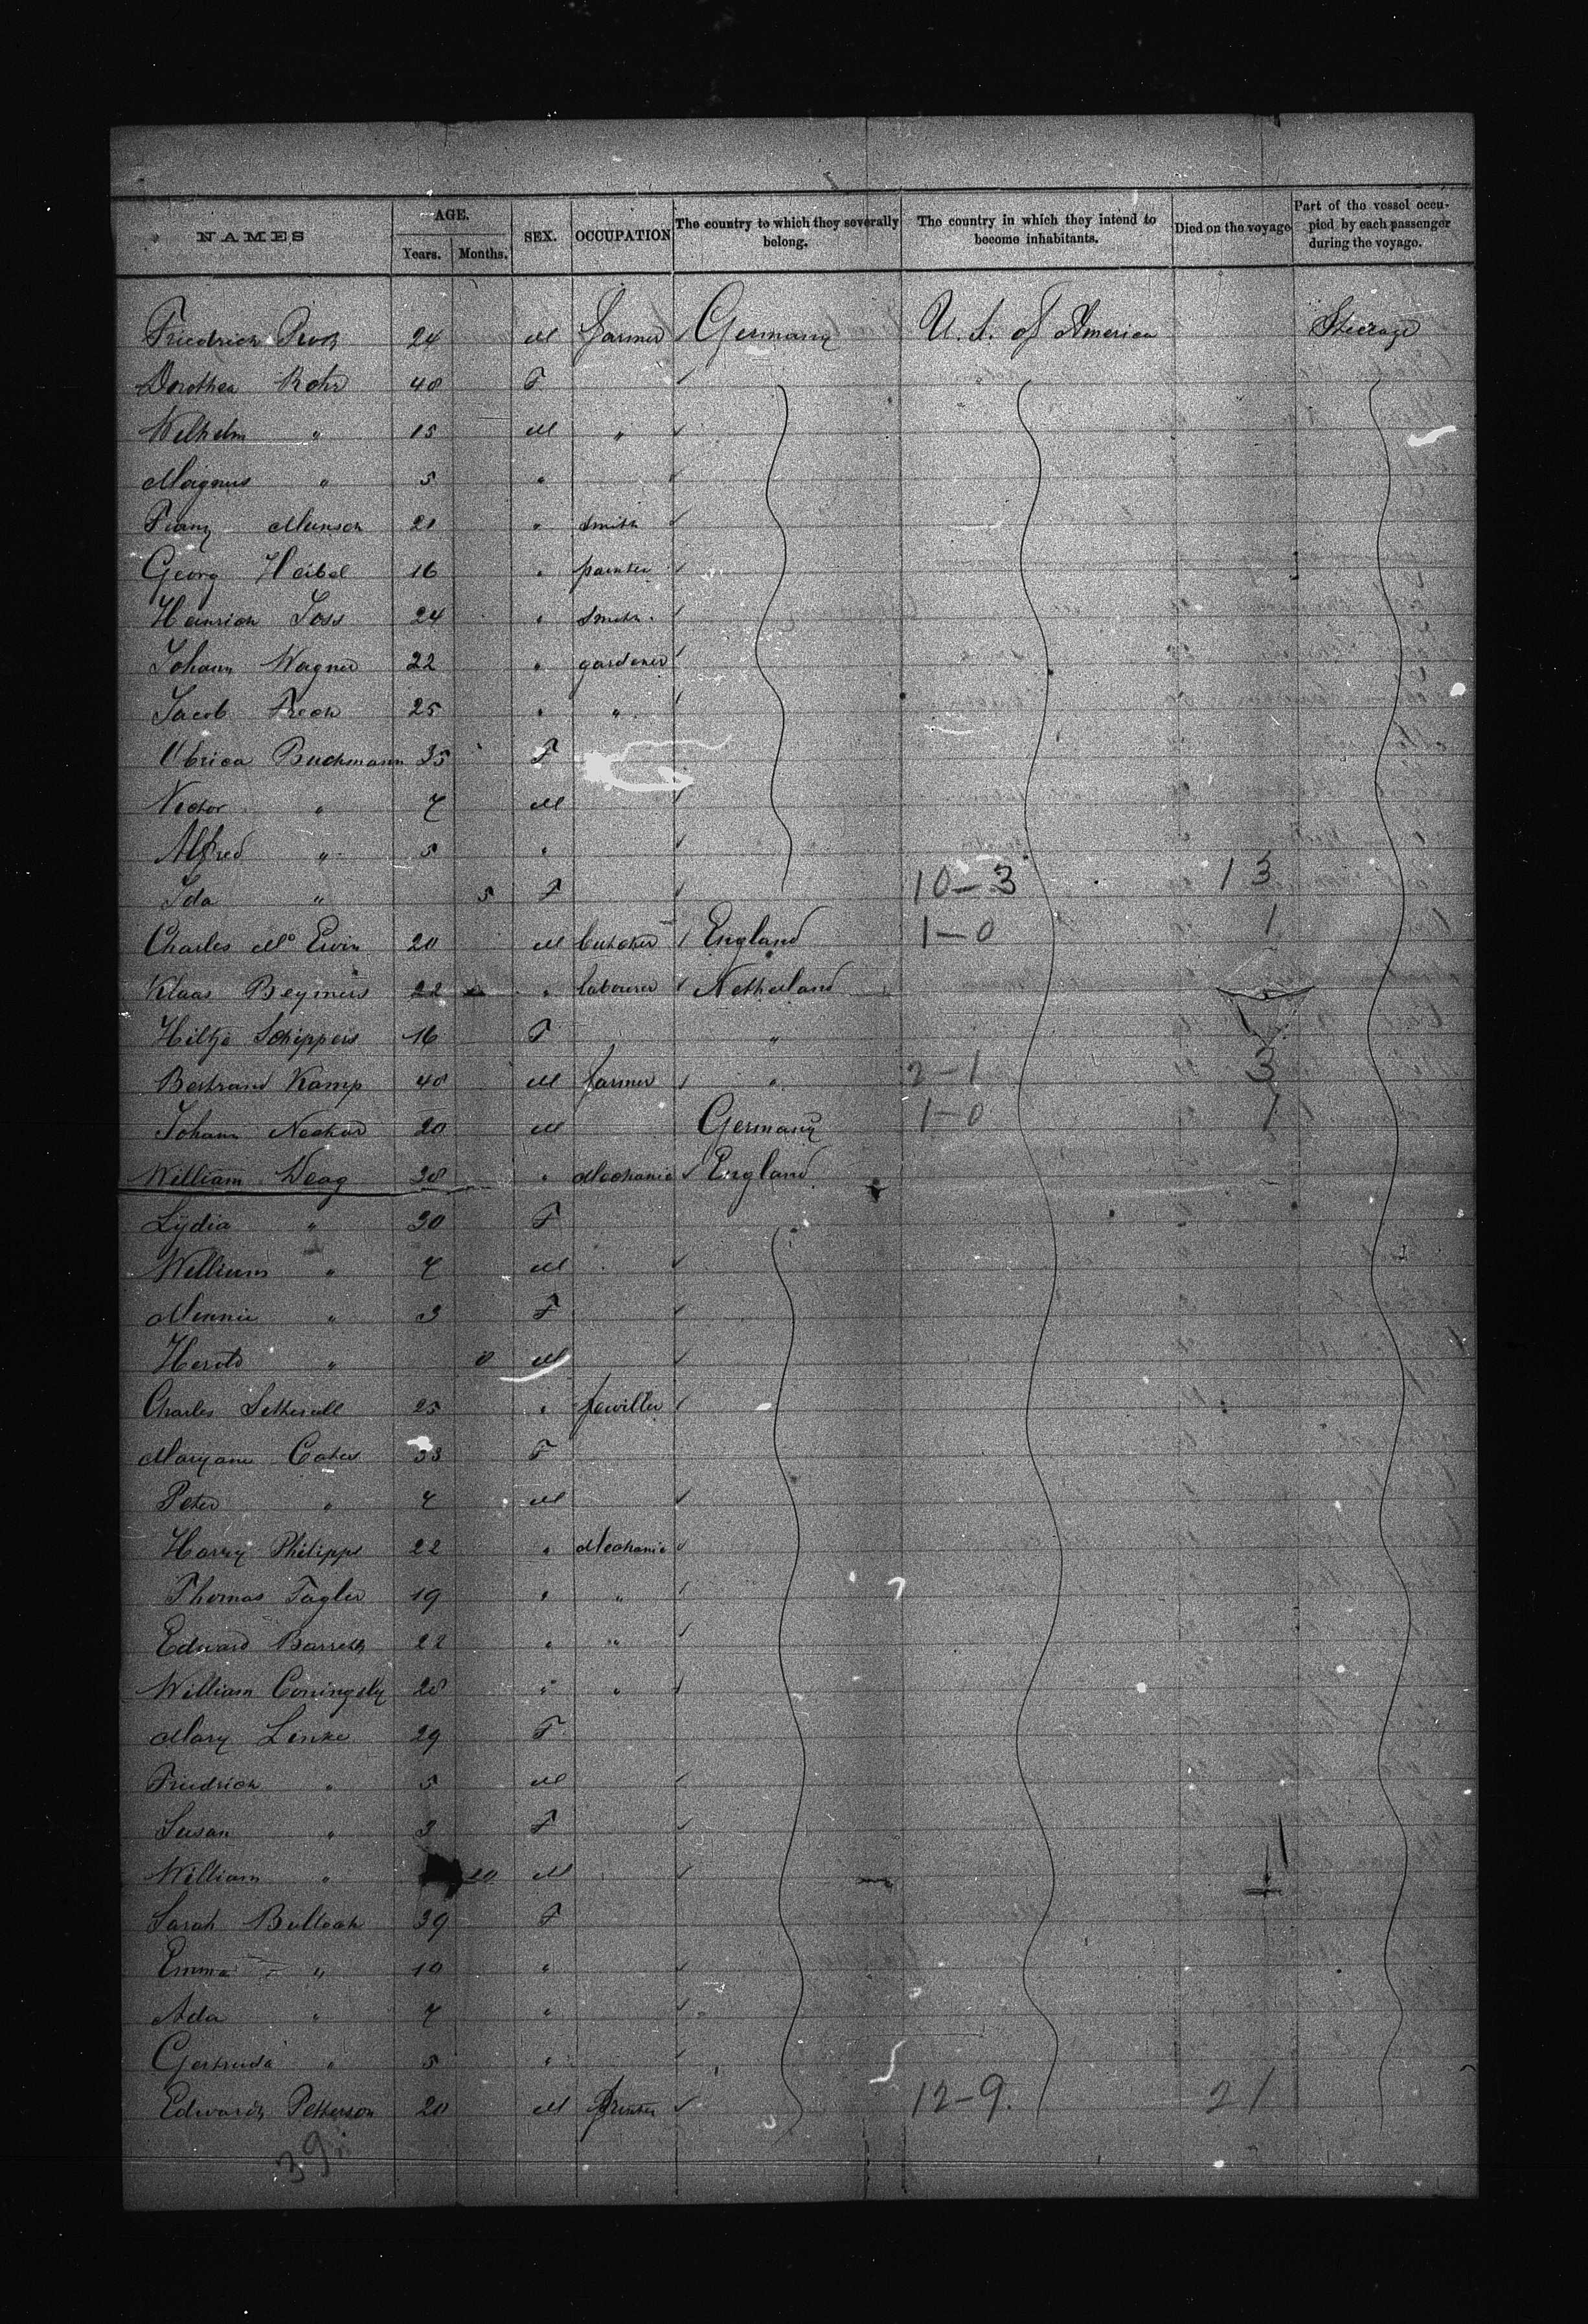 NAMES AGE. Years. Months. SEX. OCCUPATION The country to which they severally belong. The country in which they intend to become inhabitants. Died on the voyage Part of the vessel occupied by each passenger during the voyage.
Friedrich 24 M farmer Germany U. S. of America Steerage
Dorothea Rohr 48 F
Wilhelm " 15 M "
Magnus " 5 "
Franz Mensch 21 " smith
Georg Heibel 16 " painter
Heinrich Joss 24 " smith
Johann Wagner 22 " gardener
Jacob Frech 25 " "
Buchmann 35 F
" 7 M
Alfred " 5 "
Ida " 5 F 10-3 13
Charles Mc Ervin 20 M butcher England 1-0 1
Klaas Beymers 22 " labourer Netherland
Hiltje Schippers 16 F "
Bertrand Kamp 48 M farmer " 2-1 3
Johann Neckar 20 M Germany 1-0 1
William Weag 38 " Mechanic England
Lydia " 30 F
William " 7 M
Minnie " 3 F
Herold " 8 M
Charles 25 " jewiller
Maryann Cates 33 F
Peter " 7 M
Harry Philipps 22 " Mechanic
Thomas Tagler 19 " "
Edward Barrett 22 " "
William Coningsly 28 " "
Mary Linke 29 F
Friedrich " 5 M
Susan " 3 F
William " 10 M
Sarah Bullock 39 F
Emma " 10 "
Ada " 7 "
Gertruda " 5 "
Edward Petterson 20 M Printer 12-9. 21
39